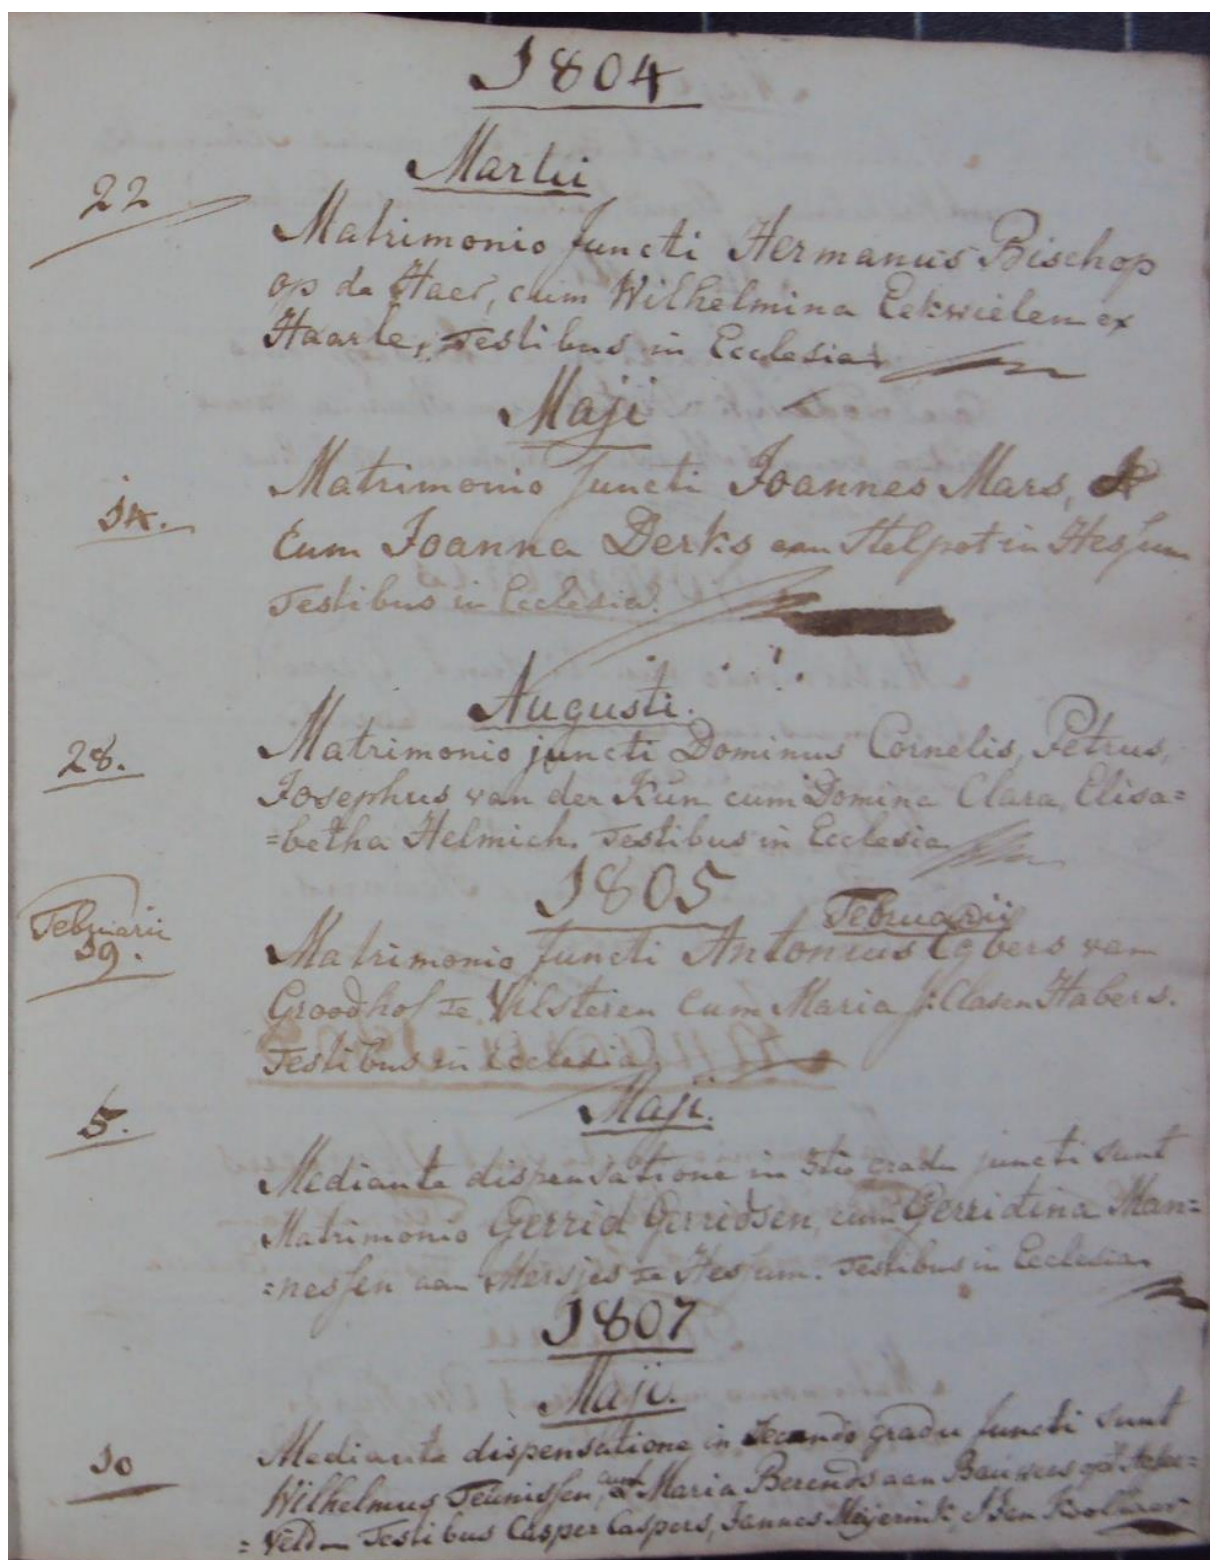 1804
Martii
22
Matrimonio Juncti Hermanus Bischop
op de Haer, cum Wilhelmina Eekwielen ex
Haarle, Testibus in Ecclesia
Maji
14.
Matrimonio Juncti Joannes Mars,
Cum Joanna Derks aan Stelpot in Hessum
Testibus in Ecclesia.
Augusti.
28.
Matrimonio juncti Dominus Cornelis, Petrus,
Josephus van der Kun cum Domina Clara, Elisa=
=betha Helmich. Testibus in Ecclesia
1805
Februarii
Februarii
19.
Matrimonio Juncti Antonius Egbers van
Groodhof te Vilsteren Cum Maria Clasen Habers.
Testibus in Ecclesia
Maji.
5.
Mediante dispensatione in 3tio gradu juncti sunt
Matrimonio Gerrid Gerridsen, cum Gerridina Man=
=nessen aan Mersjes te Hessum. Testibus in Ecclesia
1807
Maji.
10
Mediante dispensatione in Secundo gradu Juncti Sunt
Wilhelmus Teunissen, Maria Berends aan Bauwers
=Veld Testibus Casper Caspers, Jannes Meyerink,